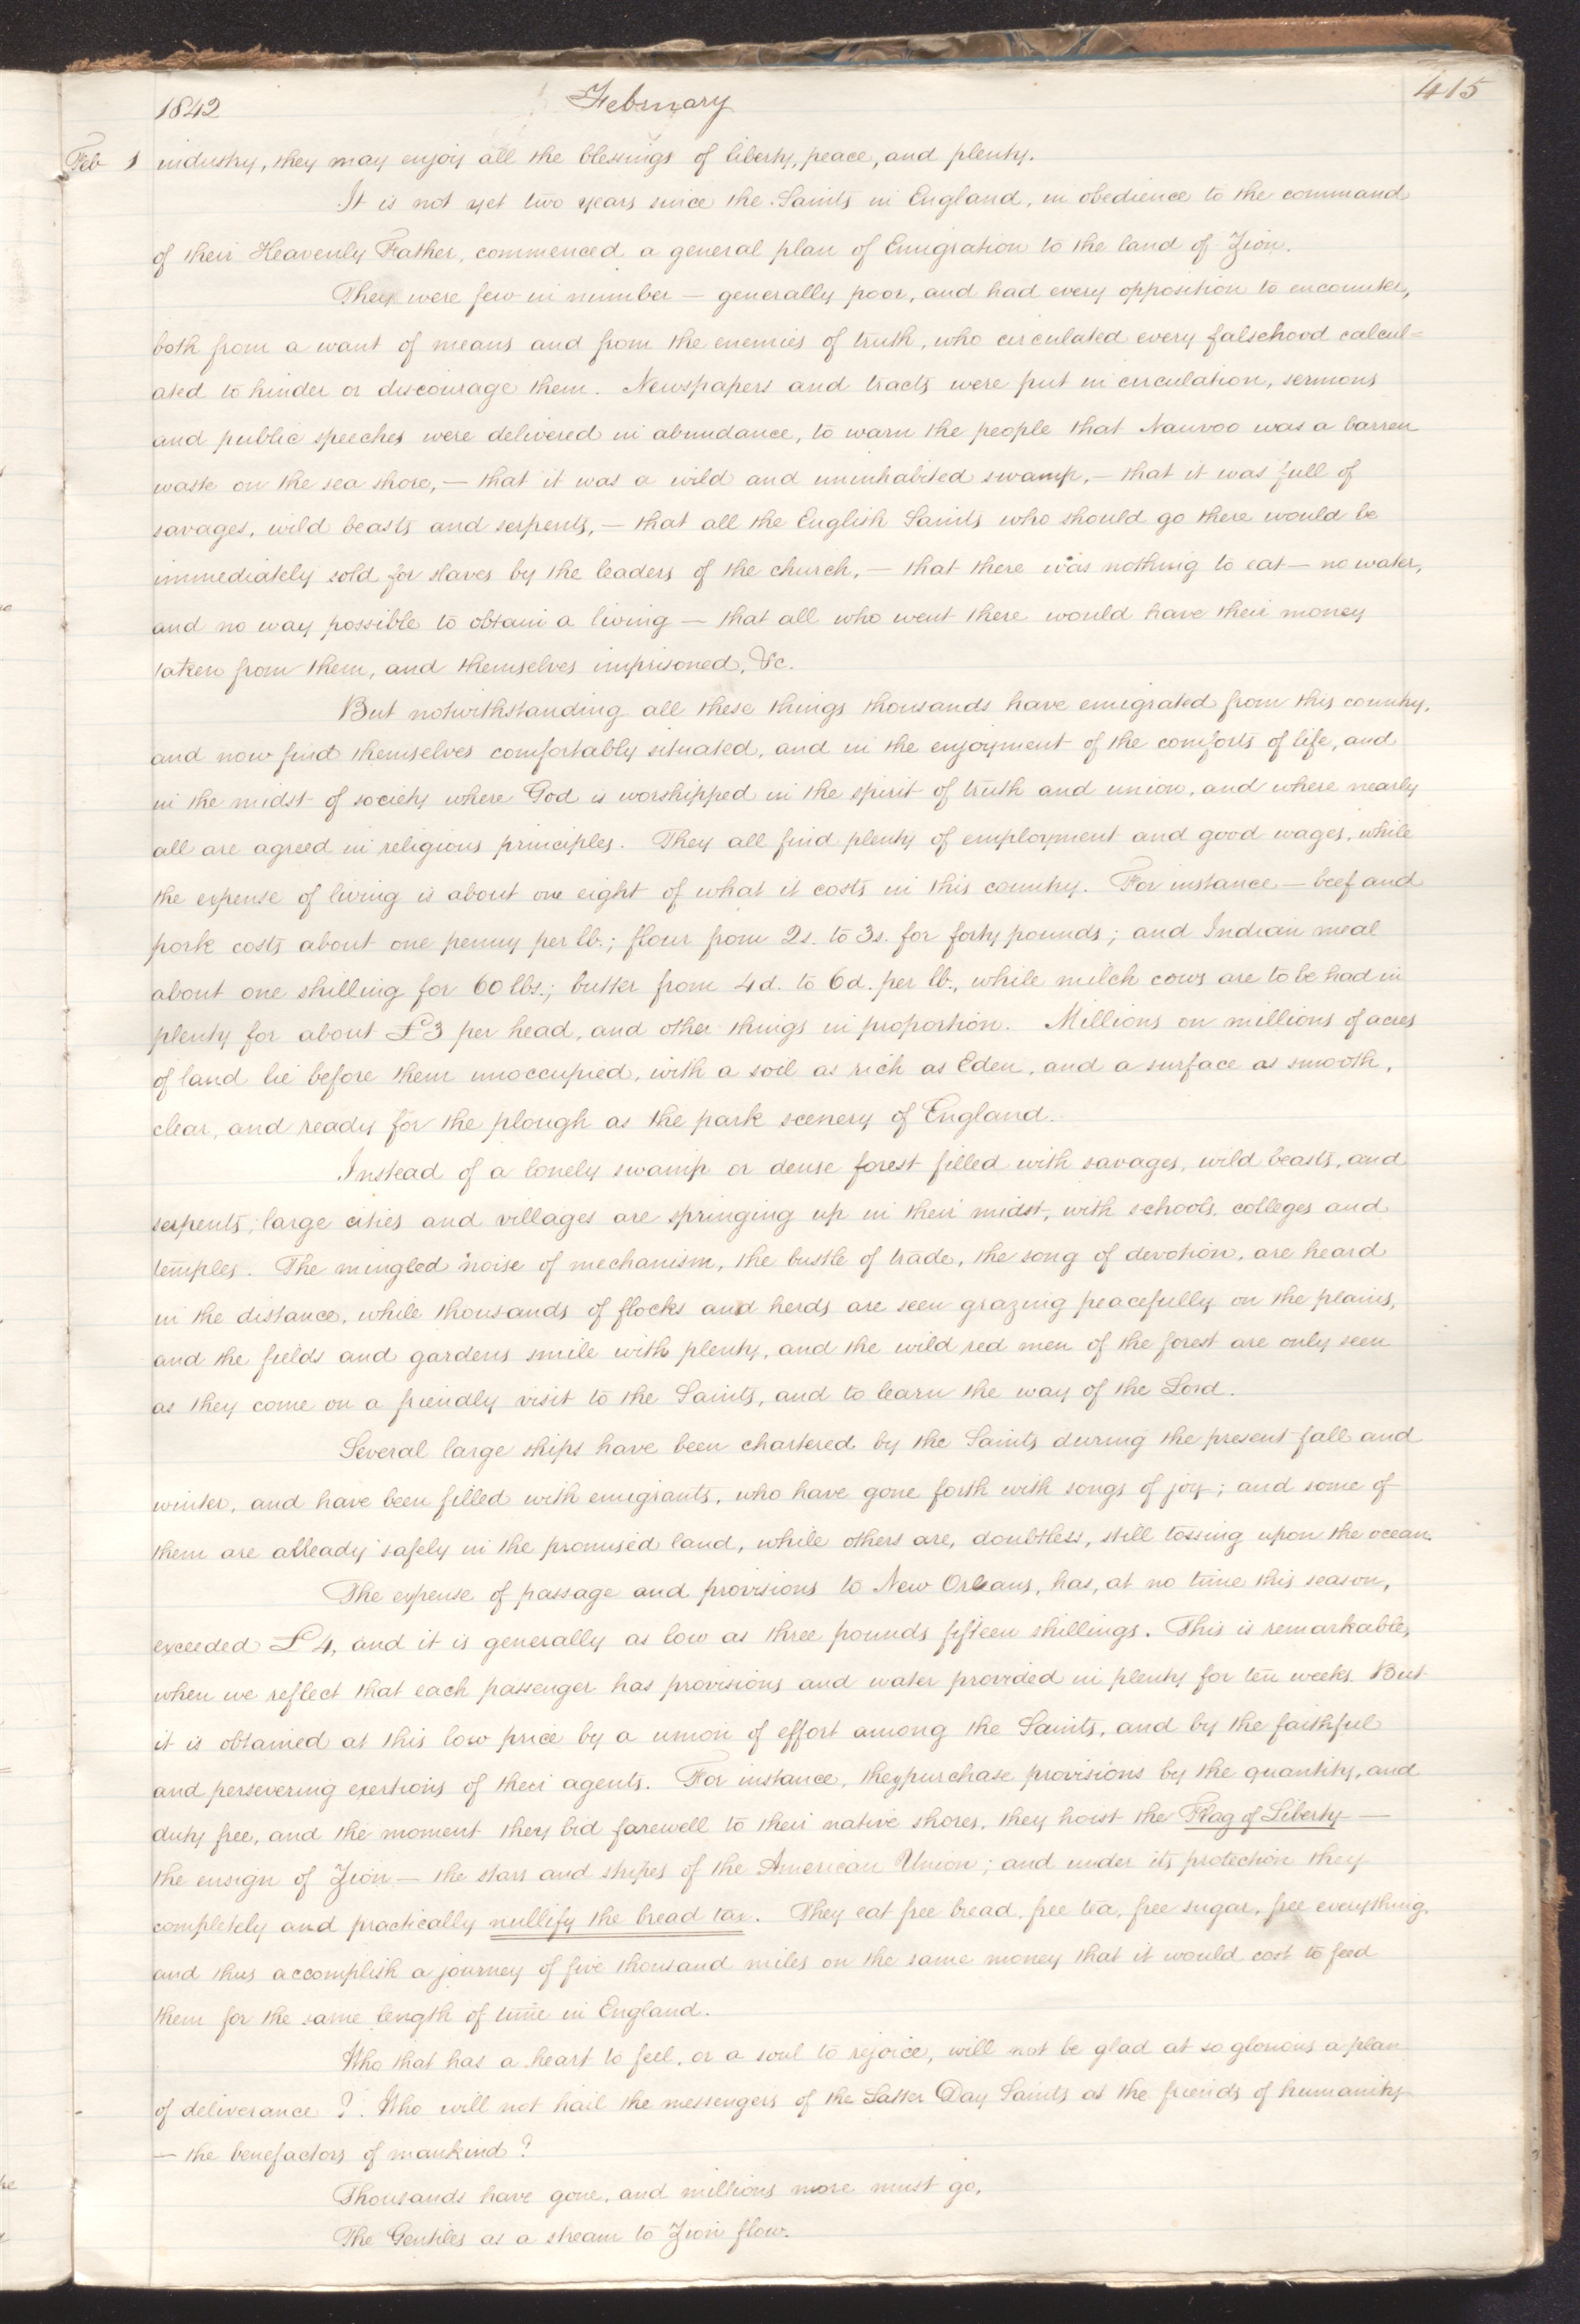 1842 February 415
Feb 1 industry, they may enjoy all the blessings of liberty, peace, and plenty.
It is not yet two years since the Saints in England, in obedience to the command
of their Heavenly Father, commenced a general plan of Emigration to the land of Zion.
They were few in number — generally poor, and had every opposition to encounter,
both from a want of means and from the enemies of truth, who circulated every falsehood calcul=
ated to hinder or discourage them. Newspapers and tracts were put in circulation, sermons
and public speeches were delivered in abundance, to warn the people that Nauvoo was a barren
waste on the sea shore, — that it was a wild and uninhabited swamp, — that it was full of
savages, wild beasts and serpents, — that all the English Saints who should go there would be
immediately sold for slaves by the leaders of the church, — that there was nothing to eat — no water,
and no way possible to obtain a living — that all who went there would have their money
taken from them, and themselves imprisoned, &c.
But notwithstanding all these things thousands have emigrated from this country,
and now find themselves comfortably situated, and in the enjoyment of the comforts of life, and
in the midst of society where God is worshipped in the spirit of truth and union, and where nearly
all are agreed in religious principles. They all find plenty of employment and good wages, while
the expense of living is about one eight of what it costs in this country. For instance — beef and
pork costs about one penny per lb.; flour from 2s. to 3s. for forty pounds; and Indian meal
about one shilling for 60 lbs.; butter from 4d. to 6d. per lb., while milch cows are to be had in
plenty for about £3 per head, and other things in proportion. Millions on millions of acres
of land lie before them unoccupied, with a soil as rich as Eden, and a surface as smooth,
clear, and ready for the plough as the park scenery of England.
Instead of a lonely swamp or dense forest filled with savages, wild beasts, and
serpents, large cities and villages are springing up in their midst, with schools, colleges and
temples. The mingled noise of mechanism, the bustle of trade, the song of devotion, are heard
in the distance, while thousands of flocks and herds are seen grazing peacefully on the plains,
and the fields and gardens smile with plenty, and the wild red men of the forest are only seen
as they come on a friendly visit to the Saints, and to learn the way of the Lord.
Several large ships have been chartered by the Saints during the present fall and
winter, and have been filled with emigrants, who have gone forth with songs of joy; and some of
them are already safely in the promised land, while others are, doubtless, still tossing upon the ocean.
The expense of passage and provisions to New Orleans, has, at no time this season,
exceeded £4, and it is generally as low as three pounds fifteen shillings. This is remarkable,
when we reflect that each passenger has provisions and water provided in plenty for ten weeks. But
it is obtained at this low price by a union of effort among the Saints, and by the faithful
and persevering exertions of their agents. For instance, they purchase provisions by the quantity, and
duty free, and the moment they bid farewell to their native shores, they hoist the Flag of Liberty —
the ensign of Zion — the stars and stripes of the American Union; and under its protection they
completely and practically nullify the bread tax. They eat free bread, free tea, free sugar, free everything,
and thus accomplish a journey of five thousand miles on the same money that it would cost to feed
them for the same length of time in England.
Who that has a heart to feel, or a soul to rejoice, will not be glad at so glorious a plan
of deliverance? Who will not hail the messengers of the Latter Day Saints as the friends of humanity
— the benefactors of mankind?
Thousands have gone, and millions more must go,
The Gentiles as a stream to Zion flow.